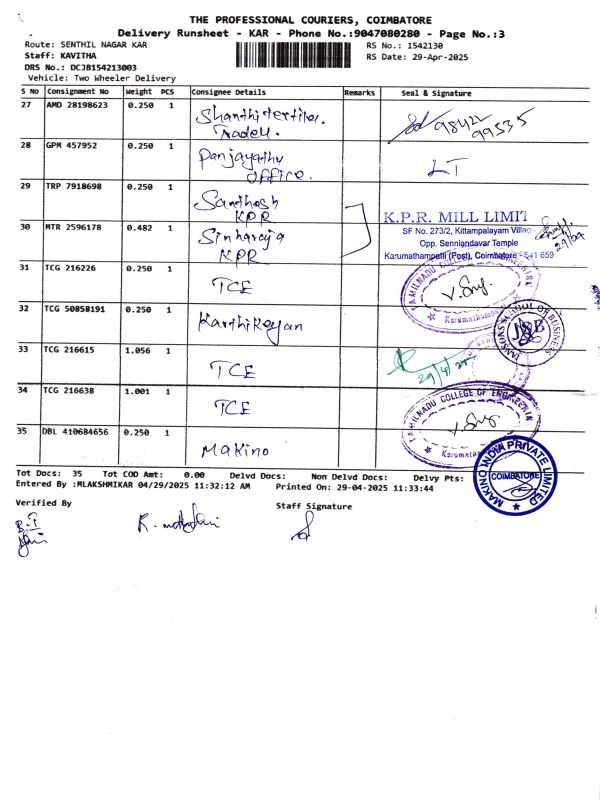 THE PROFESSIONAL COURIERS, COIMBATORE
Delivery Runsheet - KAR - Phone No.:9047080280 - Page No.:3
Route: SENTHIL NAGAR KAR
RS No.: 1542130
Staff: KAVITHA
RS Date: 29-Apr-2025
DRS No.: DCJB154213003
Vehicle: Two Wheeler Delivery
S No Consignment No Weight PCS Consignee Details Remarks Seal & Signature
27 AMD 28198623 0.250 1 Shanthi
98422
99535
28 GPM 457952 0.250 1 Panjayathu
office.
LT
29 TRP 7918698 0.250 1 Santhosh
KPR
K.P.R. MILL LIMIT
30 MTR 2596178 0.482 1 Sinharaja
KPR
SF No. 273/2, Kittampalayam Villag
Opp. Senniandavar Temple
Karumathampatti (Post), Coimbatore - 641 659
29/04
31 TCG 216226 0.250 1 TCE
TAMILNADU COLLEGE OF ENGINEERIN
32 TCG 50858191 0.250 1 Karthikeyan
JANSONS SCHOOL OF BUSINESS
JSB
33 TCG 216615 1.056 1 TCE
29/4/25
34 TCG 216638 1.001 1 TCE
TAMILNADU COLLEGE OF ENGINEERIN
35 DBL 410684656 0.250 1 Makino
MAKINO INDIA PRIVATE LIMITED
COIMBATORE
Tot Docs: 35 Tot COD Amt: 0.00 Delvd Docs: Non Delvd Docs: Delvy Pts:
Entered By :MLAKSHMIKAR 04/29/2025 11:32:12 AM Printed On: 29-04-2025 11:33:44
Verified By
Staff Signature